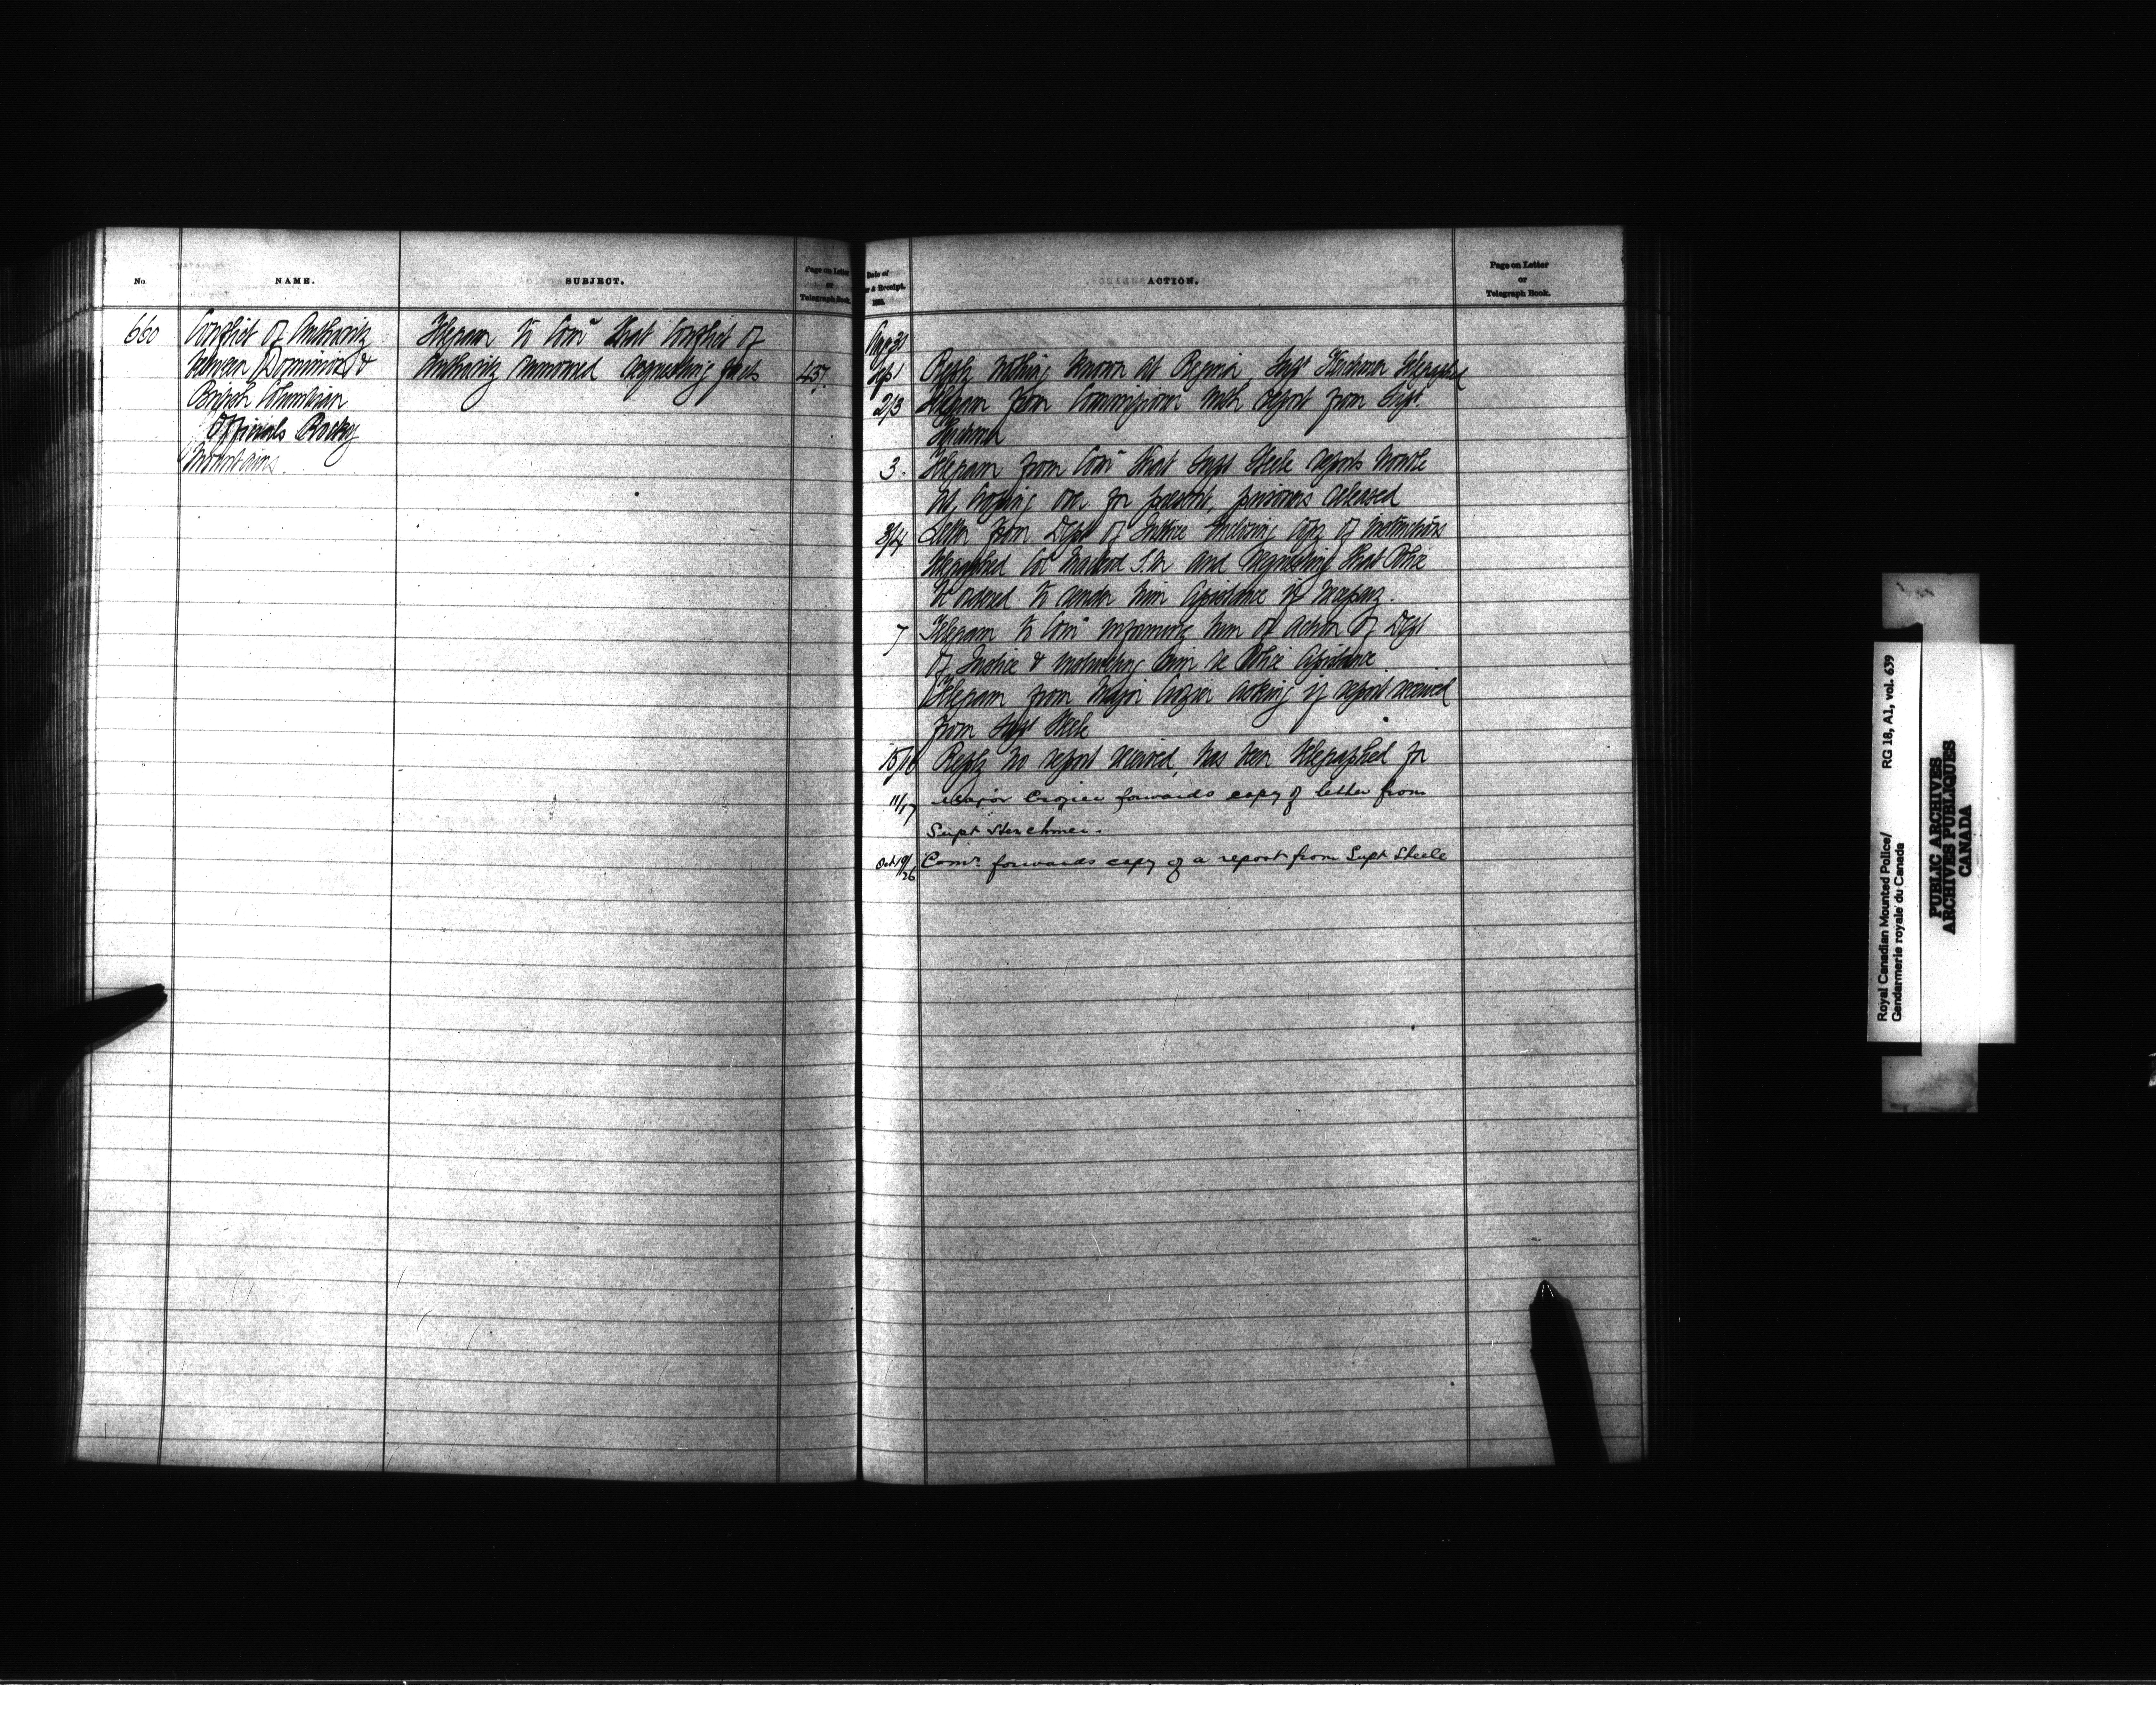 No.
NAME.
SUBJECT.
Page on Letter
or
Telegraph Book.
660
Conflict of Authority
between Dominion &
British Columbian
Officials Rocky
Mountains.
Telegram to Comr that Conflict of
Authority rumored requesting facts
457.
Date of
& Receipt.
ACTION.
Page on Letter
or
Telegraph Book.
Aug 31
Sep 1 Reply nothing known at Regina, Supt Herchmer telegraphed
2/3 Telegram from Commissioner with report from Supt.
Herchmer
3. Telegram from Comr that Supt Steele reports trouble
at, over for present, prisoners released
3/4 Letter from Dept of Justice enclosing copy of instructions
telegraphed Col Macleod S.M and requesting that Police
be ordered to render him assistance if necessary.
7 Telegram to Comr informing him of action of Dept
of Justice & instructing him re Police assistance
Telegram from Major Crozier asking if report received
from Supt Steele
15/16 Reply no report received, has been telegraphed for
11/17 Major Crozier forwards copy of letter from
Supt Herchmer.
Oct 19/26 Comr. forwards copy of a report from Supt Steele
Royal Canadian Mounted Police/
Gendarmerie royale du Canada
RG 18, A1, vol. 639
PUBLIC ARCHIVES
ARCHIVES PUBLIQUES
CANADA